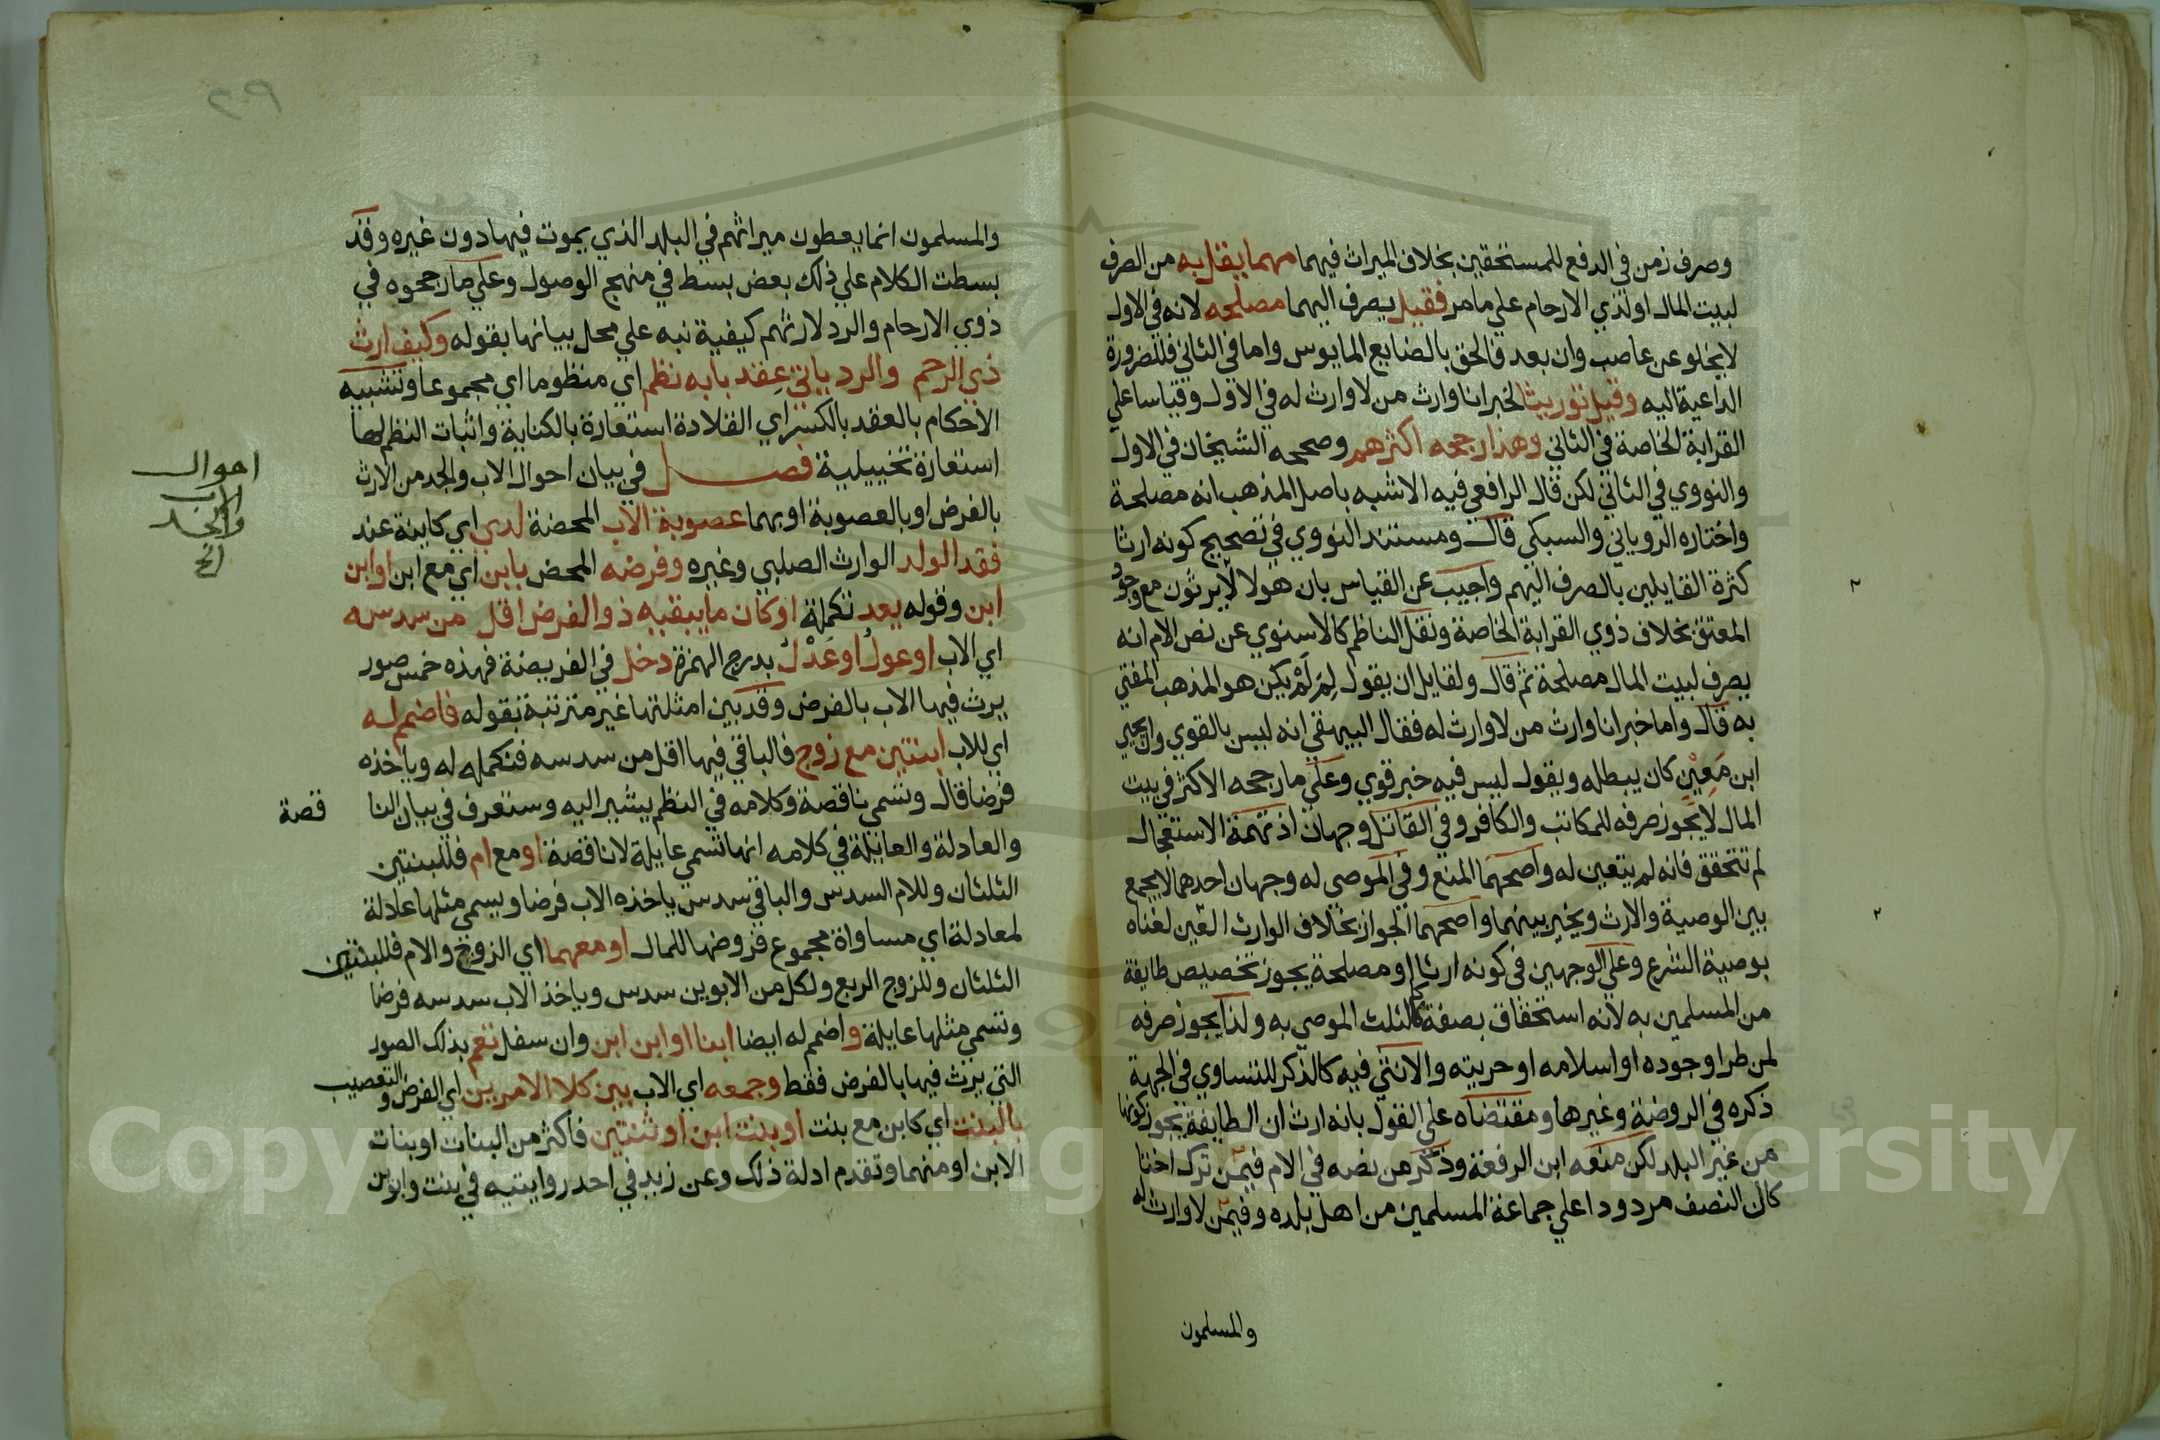 وصرف زمن في الدفع للمستحقين بخلاف الميراث فيهما مهما يقل به من الصرف
لبيت المال او لذي الارحام علي ما مر فقيل يصرف اليهما مصلحه لانه في الاول
لا يخلو عن عاصب وان بعد فالحق بالضايع المايوس واما في الثاني فللضرورة
الداعية اليه وقيل توريثا لخبر انا وارث من لا وارث له في الاول وقياسا علي
القرابة الخاصة في الثاني وهذا رجحه اكثرهم وصححه الشيخان في الاول
والنووي في الثاني لكن قال الرافعي فيه الاشبه باصل المذهب انه مصلحة
واختاره الروياني والسبكي قال ومستند النووي في تصحيح كونه ارثا
كثرة القايلين بالصرف اليهم واجيب عن القياس بان هولا لا يرثون مع وجود
المعتق بخلاف ذوي القرابة الخاصة ونقل الناظم كالاسنوي عن نص الام انه
يصرف لبيت المال مصلحة ثم قال ولقايل ان يقول لِمَ لَمْ يكن هو المذهب المفتي
به قال واما خبر انا وارث من لا وارث له فقال البيهقي انه ليس بالقوي وان يحيي
ابن مَعِيْنٍ كان يبطله ويقول ليس فيه خبر قوي وعلي ما رجحه الاكثر في بيت
المال لا يجوز صرفه للمكاتب والكافر وفي القاتل وجهان اذ تهمة الاستعجال
لم تتحقق فانه لم يتعين له واصحهما المنع وفي الموصي له وجهان احدهما لا يجمع
بين الوصية والارث ويخير بينهما واصحهما الجواز بخلاف الوارث العين لغناه
بوصية الشرع وعلي الوجهين في كونه ارثا او مصلحة يجوز تخصيص طايفة
من المسلمين به لانه استحقاق بصفة كالثلث الموصي به ولذا يجوز صرفه
لمن طرا وجوده او اسلامه او حريته والانثي فيه كالذكر للتساوي في الجهة
ذكره في الروضة وغيرها ومقتضاه علي القول بانه ارث ان الطايفة يجوز كونها
من غير البلد لكن منعه ابن الرفعة وذكر من نصه في الام فيمن ترك اختا
كان النصف مردودا علي جماعة المسلمين من اهل بلده وفيمن لا وارث له
والمسلمون
والمسلمون انما يعطون ميراثهم في البلد الذي يموت فيها دون غيره وقد
بسطت الكلام علي ذلك بعض بسط في منهج الوصول وعلي ما رجحوه في
ذوي الارحام والرد لارثهم كيفية نبه علي محل بيانها بقوله وكيف ارث
ذي الرحم والرد ياتي عِقد بابه نظم اي منظوما اي مجموعا وتشبيه
الاحكام بالعقد بالكسر اي القلادة استعارة بالكناية واثبات النظم لها
استعارة تخييلية فصل في بيان احوال الاب والجد من الارث
بالفرض او بالعصوبة او بهما عصوبة الاب المحضة لدي اي كاينة عند
فقد الولد الوارث الصلبي وغيره وفرضه المحض بابن اي مع ابن او ابن
ابن وقوله بعد تكملة او كان ما يبقيه ذو الفرض اقل من سدسه
اي الاب او عولٌ او عَدْلٌ بدرج الهمزة دخل في الفريضة فهذه خمس صور
يرث فيها الاب بالفرض وقد بين امثلتها غير مترتبة بقوله فاضمم له
اي للاب ابنتين مع زوج فالباقي فيها اقل من سدسه فتكمله له وياخذه
فرضا قال وتسمي ناقصة وكلامه في النظم يشير اليه وستعرف في بيان النا
قصة
والعادلة والعايلة في كلامه انها تسمي عايلة لا ناقصة او مع ام فللبنتين
الثلثان وللام السدس والباقي سدس ياخذه الاب فرضا ويسمي مثلها عادلة
لمعادلة اي مساواة مجموع فروضها للمال او معهما اي الزوج والام فللبنتين
الثلثان وللزوج الربع ولكل من الابوين سدس وياخذ الاب سدسه فرضا
وتسمي مثلها عايلة واضمم له ايضا ابنا او ابن ابن وان سفل نعم بذلك الصور
التي يرث فيها بالفرض فقط وجمعه اي الاب بين كلا الامرين اي الفرض والتعصيب
بالبنت اي كاين مع بنت او بنت ابن او ثنتين فاكثر من البنات او بنات
الابن او منهما وتقدم ادلة ذلك وعن زيد في احد روايتيه في بنت وابوين
احوال
الاب
والجد
الخ
Copyright © King Saud University